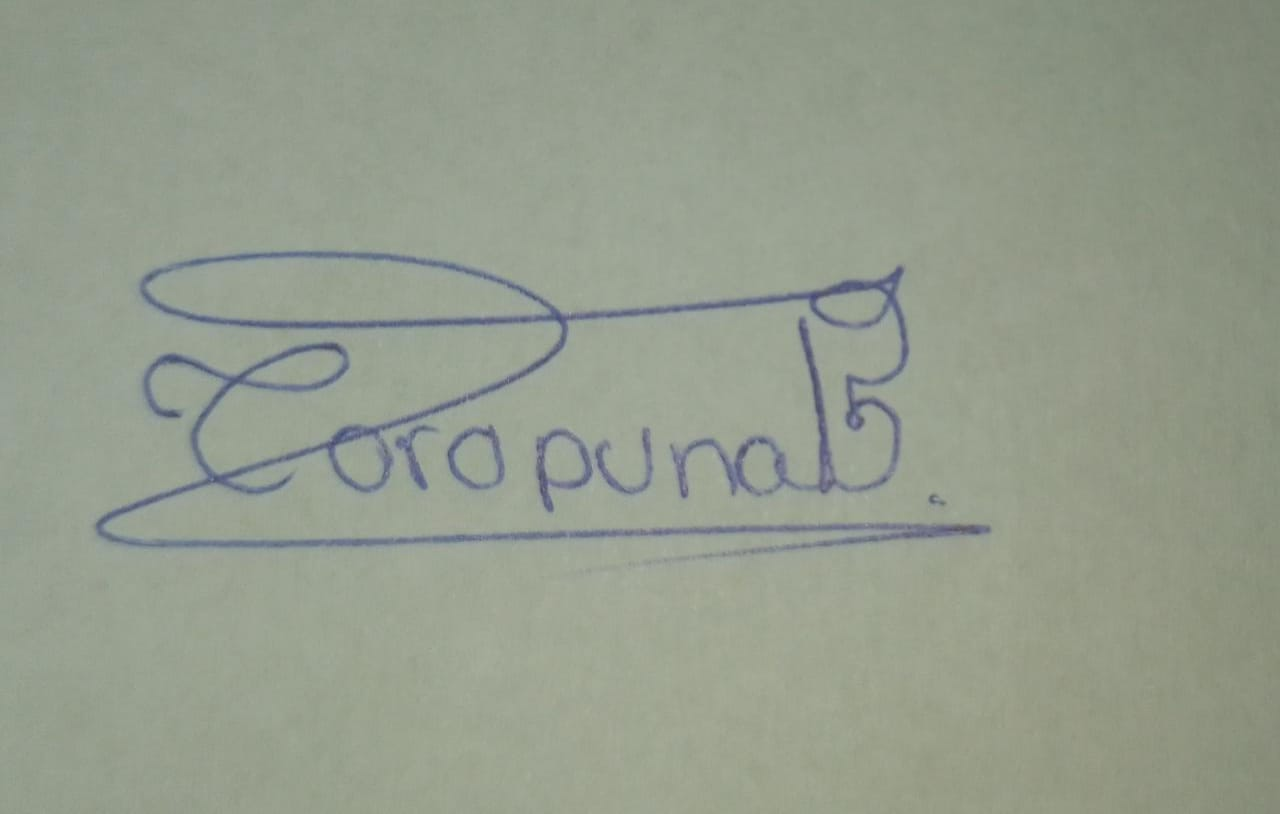 Coropuna B.